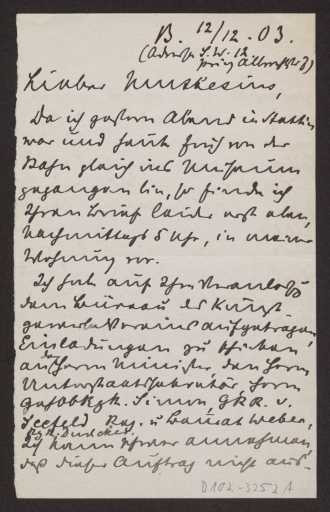 B. 12/12.03.
(Adresse S.W. 12
Prinz Albrechtstr 7)
Lieber Muthesius,
Da ich gestern Abend in Stettin
war und heute früh von der
Bahn gleich ins Museum
gegangen bin, so finde ich
Ihren Brief leider erst eben,
Nachmittags 5 Uhr, in meiner
Wohnung vor.
Ich habe auf Ihre Veranlass
dem Bureau des Kunst-
gewerbe Vereins aufgetragen,
Einladungen zu schicken
an den Herrn Minister, den Herrn
Unterstaatssekretär, Herrn
Simon GRR. v.
Seefeld Reg. u Baurat Weber,
Ich kann schwer annehmen
daß dieser Auftrag nicht aus-
D102-3252 A